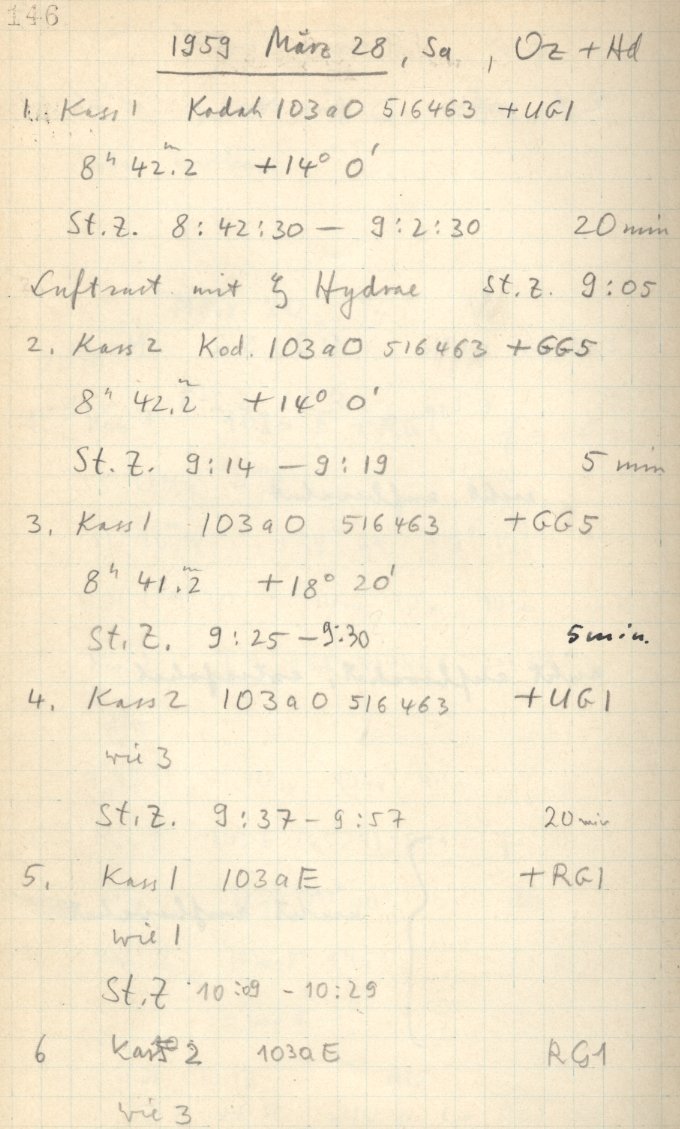 146
1959 März 28, Sa, Oz + Hd
1. Kass 1 Kodak 103aO 516463 +UG1
8ʰ 42.ᵐ2 +14° 0'
St.Z. 8:42:30 — 9:2:30 20 min
mit ξ Hydrae St.Z. 9:05
2. Kass 2 Kod. 103aO 516463 +GG5
8ʰ 42.ᵐ2 +14° 0'
St.Z. 9:14 — 9:19 5 min
3. Kass 1 103aO 516463 +GG5
8ʰ 41.ᵐ2 +18° 20'
St.Z. 9:25 — 9:30 5 min.
4. Kass 2 103aO 516463 +UG1
wie 3
St.Z. 9:37 - 9:57 20 min
5. Kass 1 103aE +RG1
wie 1
St.Z 10:09 - 10:29
6 Kass 2 103aE RG1
wie 3